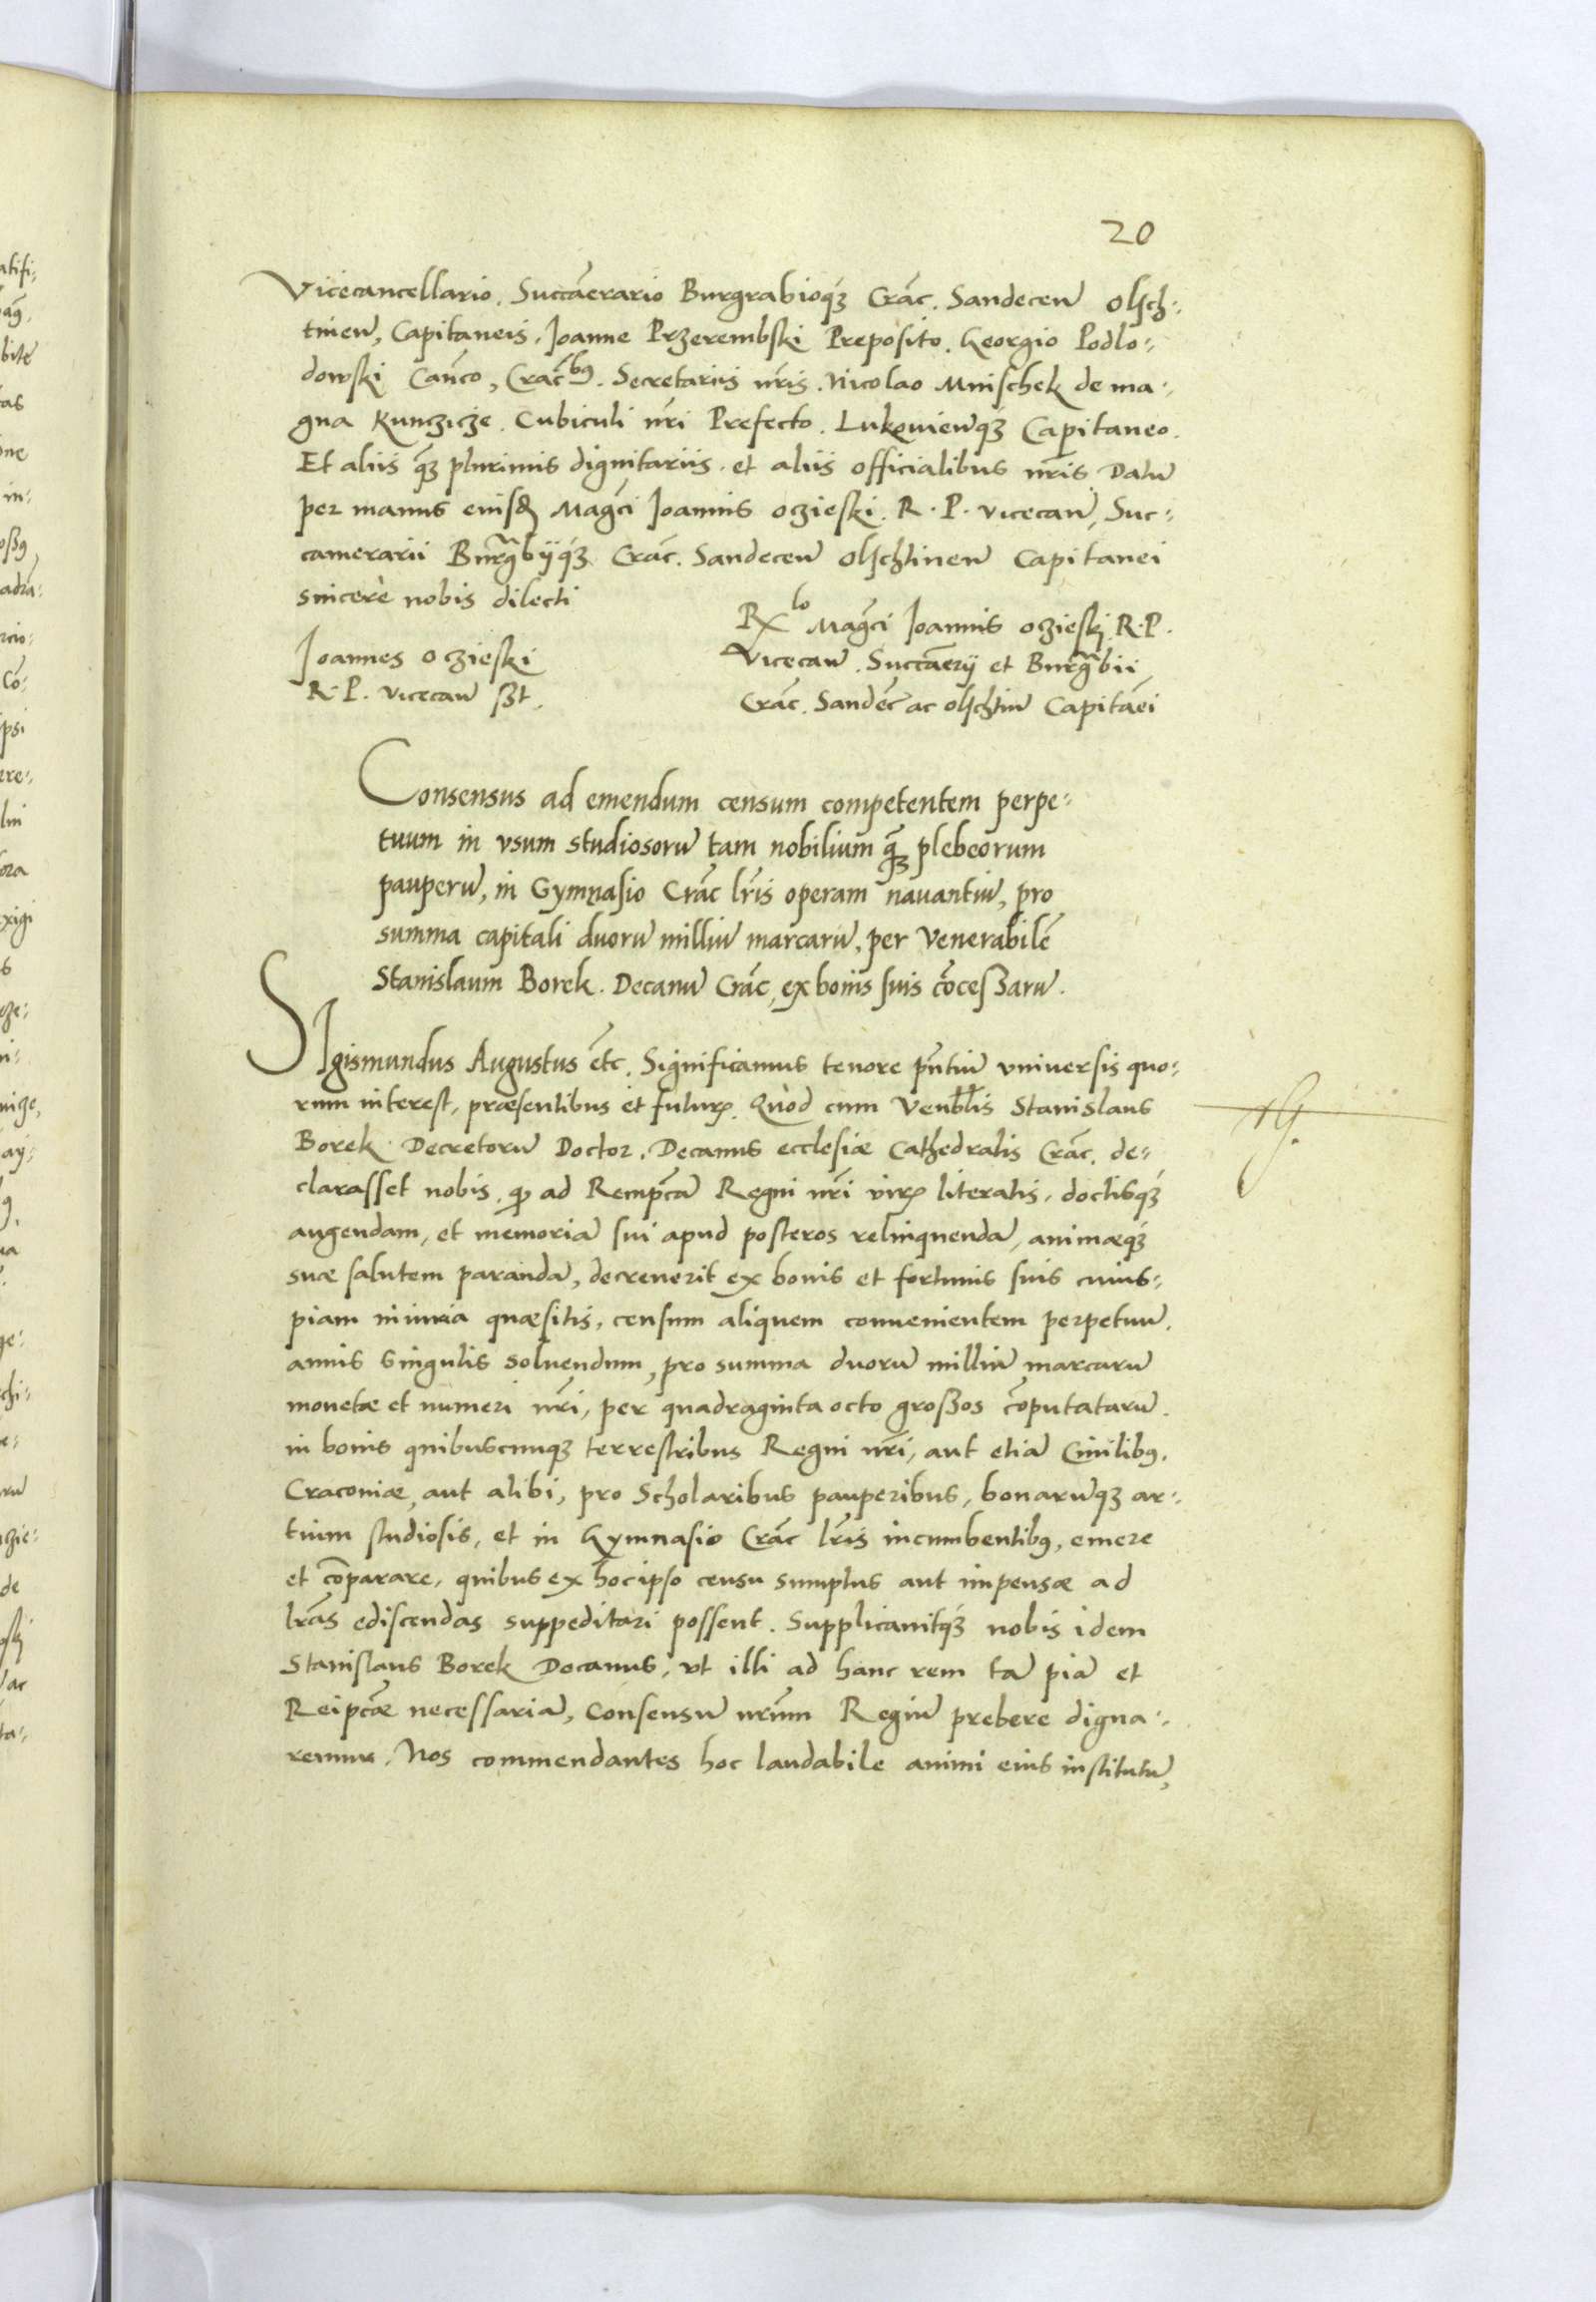 20
Vicecancellario. Succamerario Burgrabioq́ꝫ Crac̄. Sandeceñ olsch-
tineñ, Capitaneis, Joanne Przerembski Preposito. Georgio Podlo-
dowski Can̄co, Crac̄bꝰ. Secretariis nr̄is. Nicolao Mnischek de ma-
gna Kunczicze. Cubiculi nr̄i Prefecto. Lukovieñq́ꝫ Capitaneo.
Et aliis q̄ꝫ plurimis dignitariis. et aliis officialibus nr̄is. Datū
per manus eiusd̄ Maḡci Joannis oczieski. R. P. vicecan̄, Suc-
camerarii Burgrabijq́ꝫ Crac̄. Sandeceñ olschtineñ Capitanei
sincerè nobis dilecti
Joannes oczieski
R. P. vicecan̄ sst.
Rlo Maḡci Joannis oczieski R. P.
vicecan̄. Succam̄erij et Burgrabii
Crac̄. Sandec̄ ac olschtin̄ Capitān̄ei
Consensus ad emendum censum competentem perpe-
tuum in vsum studiosorū tam nobilium q̄ꝫ plebeorum
pauperū, in Gymnasio Crac̄ lr̄is operam nauantiū, pro
summa capitali duorū milliū marcarū, per Venerabilē
Stanislaum Borek. Decanū Crac̄, ex bonis suis cōcessarū.
SIgismundus Augustus etc̄. Significamus tenore pn̄tiū vniuersis quo-
rum interest, præsentibus et futurꝭ. Quòd cum Venb̄lis Stanislaus
Borek Decretorū Doctor. Decanus ecclesiæ Cathedralis Crac̄. de-
clarasset nobis, ꝙ ad Remp̄cā Regni nr̄i virꝭ literatis, doctisq́ꝫ
augendam, et memoriā sui apud posteros relinquendā, animæq́ꝫ
suæ salutem parandā, decreuerit ex bonis et fortunis suis cuius-
piam iniuria quæsitis, censum aliquem conuenientem perpetuū.
annis singulis soluendum, pro summa duorū milliū marcarū
monetæ et numeri nr̄i, per quadraginta octo grossos cōputatarū.
in bonis quibuscunqꝫ terrestribus Regni nr̄i, aut etiā Ciuilibꝰ.
Cracouiæ, aut alibi, pro Scholaribus pauperibus, bonarūqꝫ ar-
tium studiosis, et in Gymnasio Crac̄ lr̄is incumbentibꝰ, emere
et cōparare, quibus ex hoc ipso censu sumptus aut impensæ ad
lr̄as ediscendas suppeditari possent. Supplicauitq́ꝫ nobis idem
Stanislaus Borek Docanus, vt illi ad hanc rem tā piā et
Reip̄cæ necessariā, Consensū nr̄um Regiū prebere digna-
remur. Nos commendantes hoc laudabile animi eius institutū,